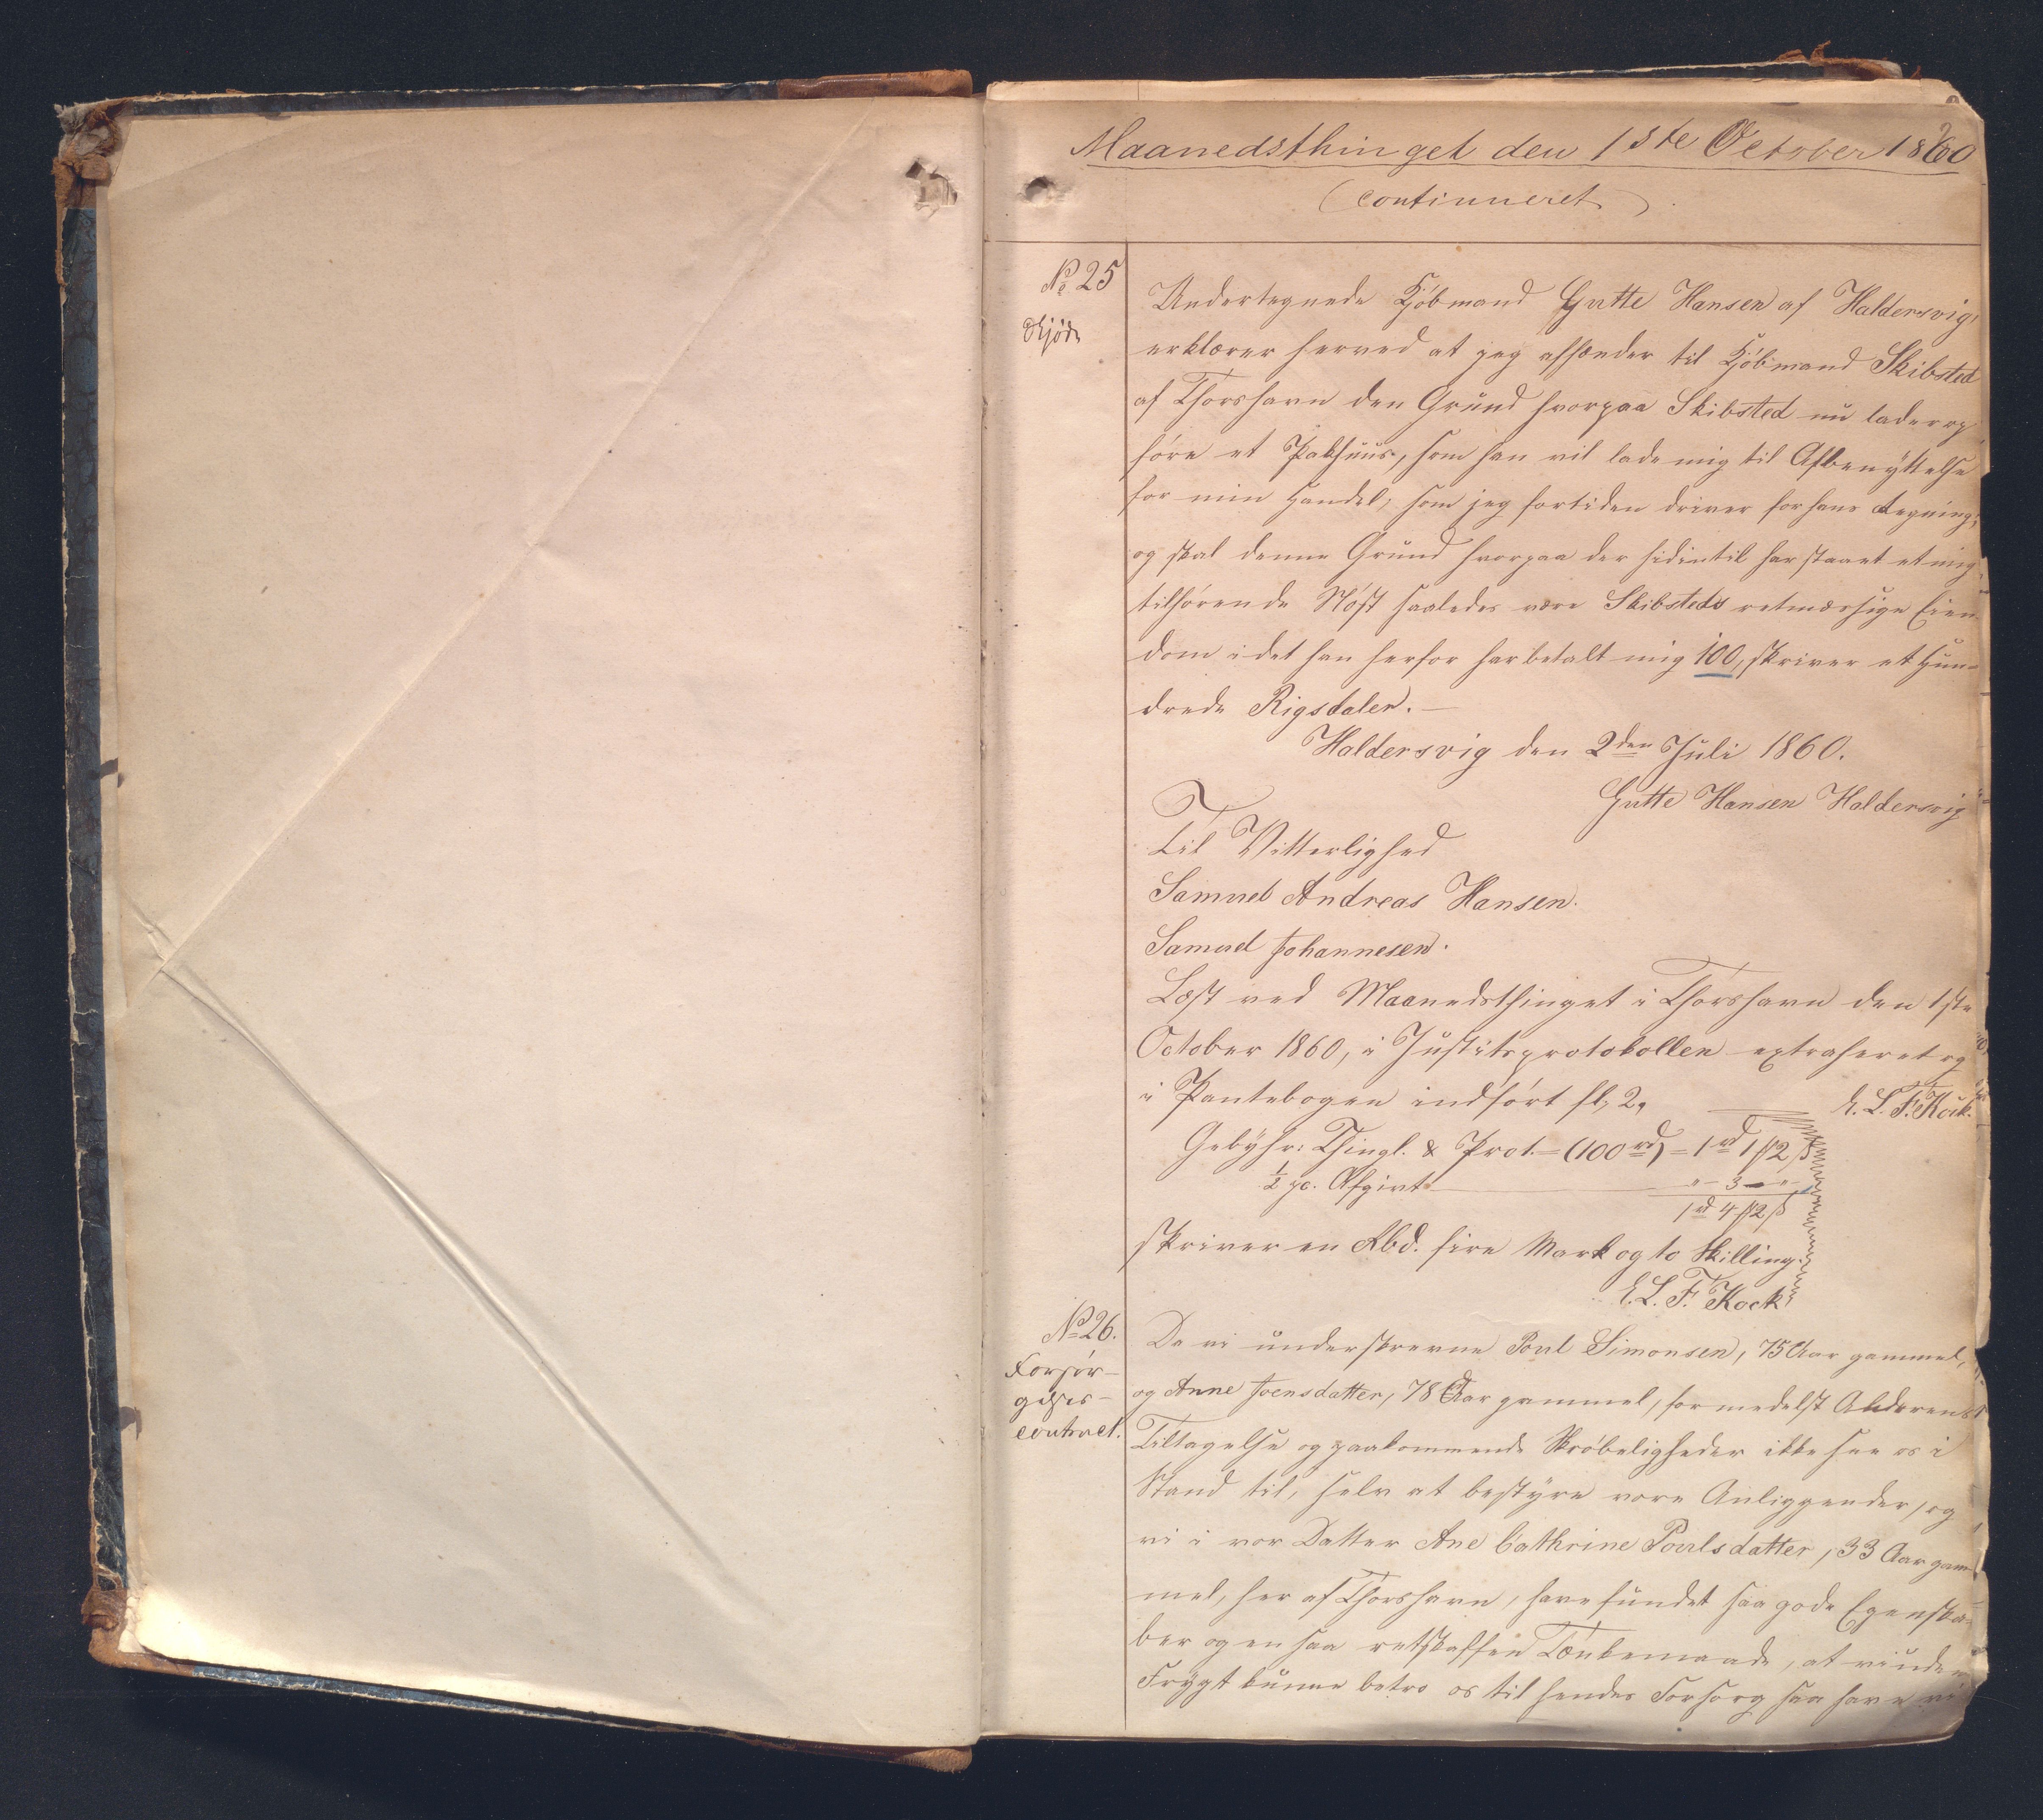 Maanedsthinget den 1ste October 1860
(continueret)
No 25
Skjøde
Undertegnede Kjøbmand Gutte Hansen af Haldersvig,
erklærer herved at jeg afhænder til Kjøbmand Skibsted
af Thorshavn den Grund hvorpaa Skibsted nu lader op
føre et Pakhuus, som han vil lade mig til Afbenyttelse
for min Handel, som jeg fortiden driver for hans Regning;
og skal denne Grund hvorpaa der hidintil har staaet et mig
tilhørende Nøst saaledes være Skibsteds retmæssige Eien-
dom idet han herfor har betalt mig 100, skriver et Hun-
drede Rigsdaler.—
Haldersvig den 2den Juli 1860.
Gutte Hansen Haldersvig
Til Vitterlighed
Samuel Andreas Hansen.
Samuel Johannesen.
Læst ved Maanedsthinget i Thorshavn den 1ste
October 1860, i Justitsprotokollen extraheret og
i Pantebogen indført fl. 2.
E. L. F. Kock.
Gebyhr: Thingl. & Prot. (100rd) = 1rd 1 ꝑ 2 ß
½ pc. Afgivt — " - 3 - "
1rd 4 ꝑ 2 ß
skriver en Rbd. fire Mark og to Skilling.
E. L. F. Kock
No 26.
Forsør-
gelses-
contract.
Da vi underskrevne Poul Simonsen, 75 Aar gammel,
og Anne Joensdatter, 78 Aar gammel, formedelst Alderens
Tiltagelse og paakommende Skrøbeligheder ikke see os i
Stand til, selv at bestyre vore Anliggender, og
vi i vor Datter Ane Cathrine Poulsdatter, 33 Aar gam-
mel, her af Thorshavn, have fundet saa gode Egenska-
ber og en saa retskaffen Tænkemaade, at vi uden
Frygt kunne betro os til hendes Forsorg saa have vi